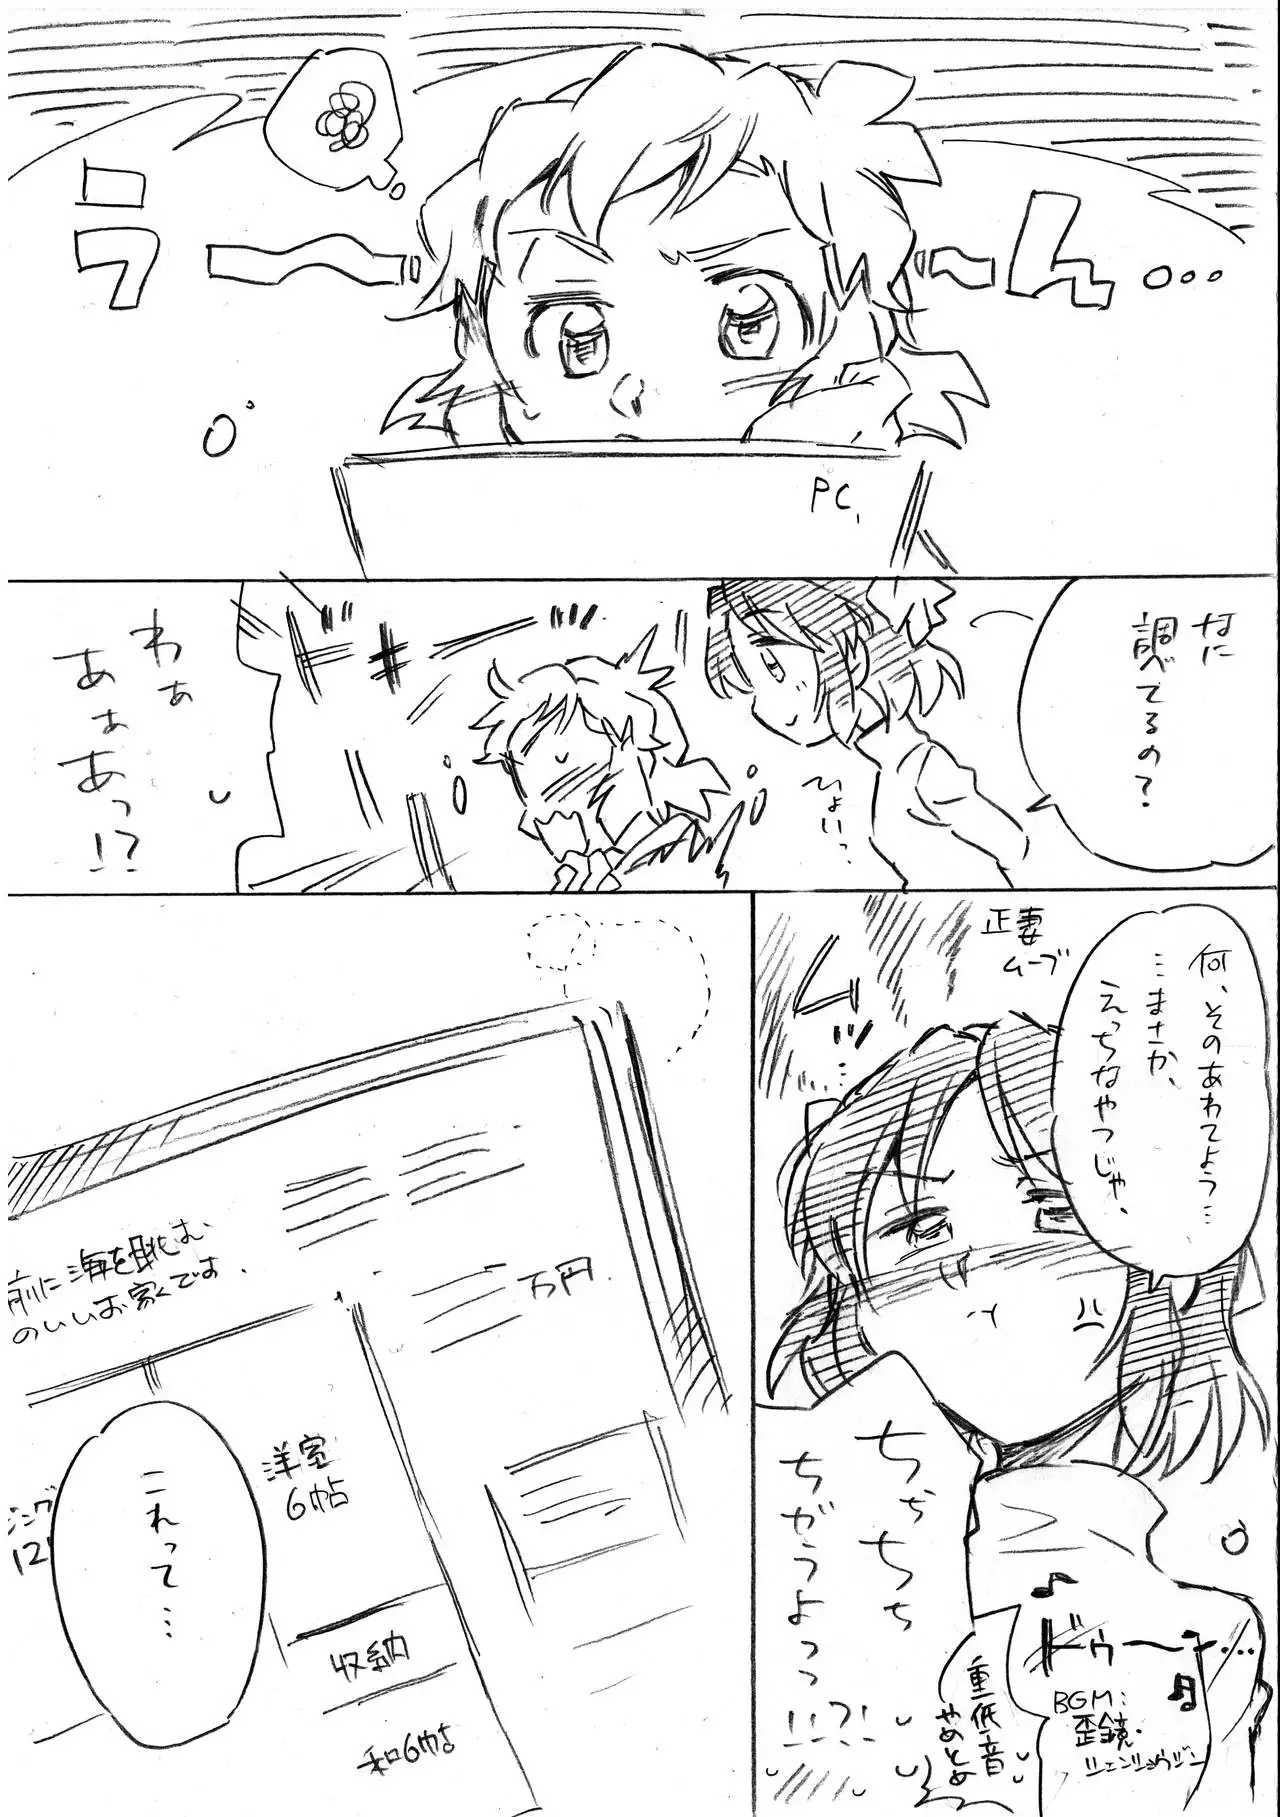 うーーん…
PC
なに
調べてるの？
ひょいっ
わぁ
あぁあっ！？
正妻
ムーブ
何、そのあわてよう…
…まさか、
えっちなやつじゃ、
ムッ…
ちちちち
ちがうよっっ
！！？！
重低音
やめとめ
ドゥーン…
BGM：
歪鏡・
シェンショウジン
前に海を眺む
のいいお家です。
万円
洋室
6帖
これって…
収納
和6帖